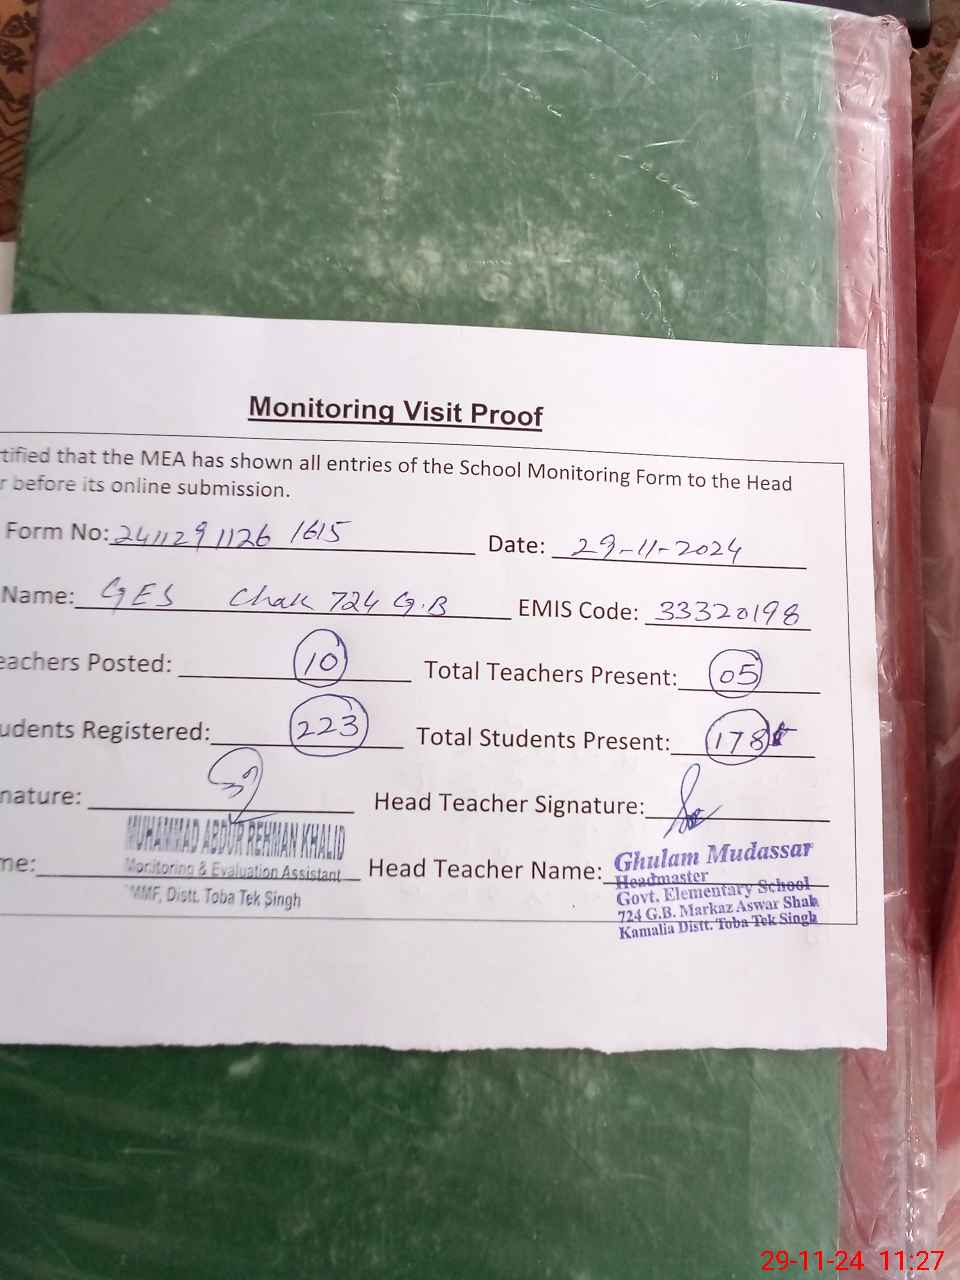 Monitoring Visit Proof
tified that the MEA has shown all entries of the School Monitoring Form to the Head
r before its online submission.
Form No: 241129 1126 1615 Date: 29-11-2024
Name: GES Chak 724 G.B EMIS Code: 33320198
eachers Posted: 10 Total Teachers Present: 05
udents Registered: 223 Total Students Present: 178
nature: Head Teacher Signature:
MUHAMMAD ABDUR REHMAN KHALID
Monitoring & Evaluation Assistant
MMF, Distt. Toba Tek Singh
me: Head Teacher Name:
Ghulam Mudassar
Headmaster
Govt. Elementary School
724 G.B. Markaz Aswar Shah
Kamalia Distt. Toba Tek Singh
29-11-24 11:27